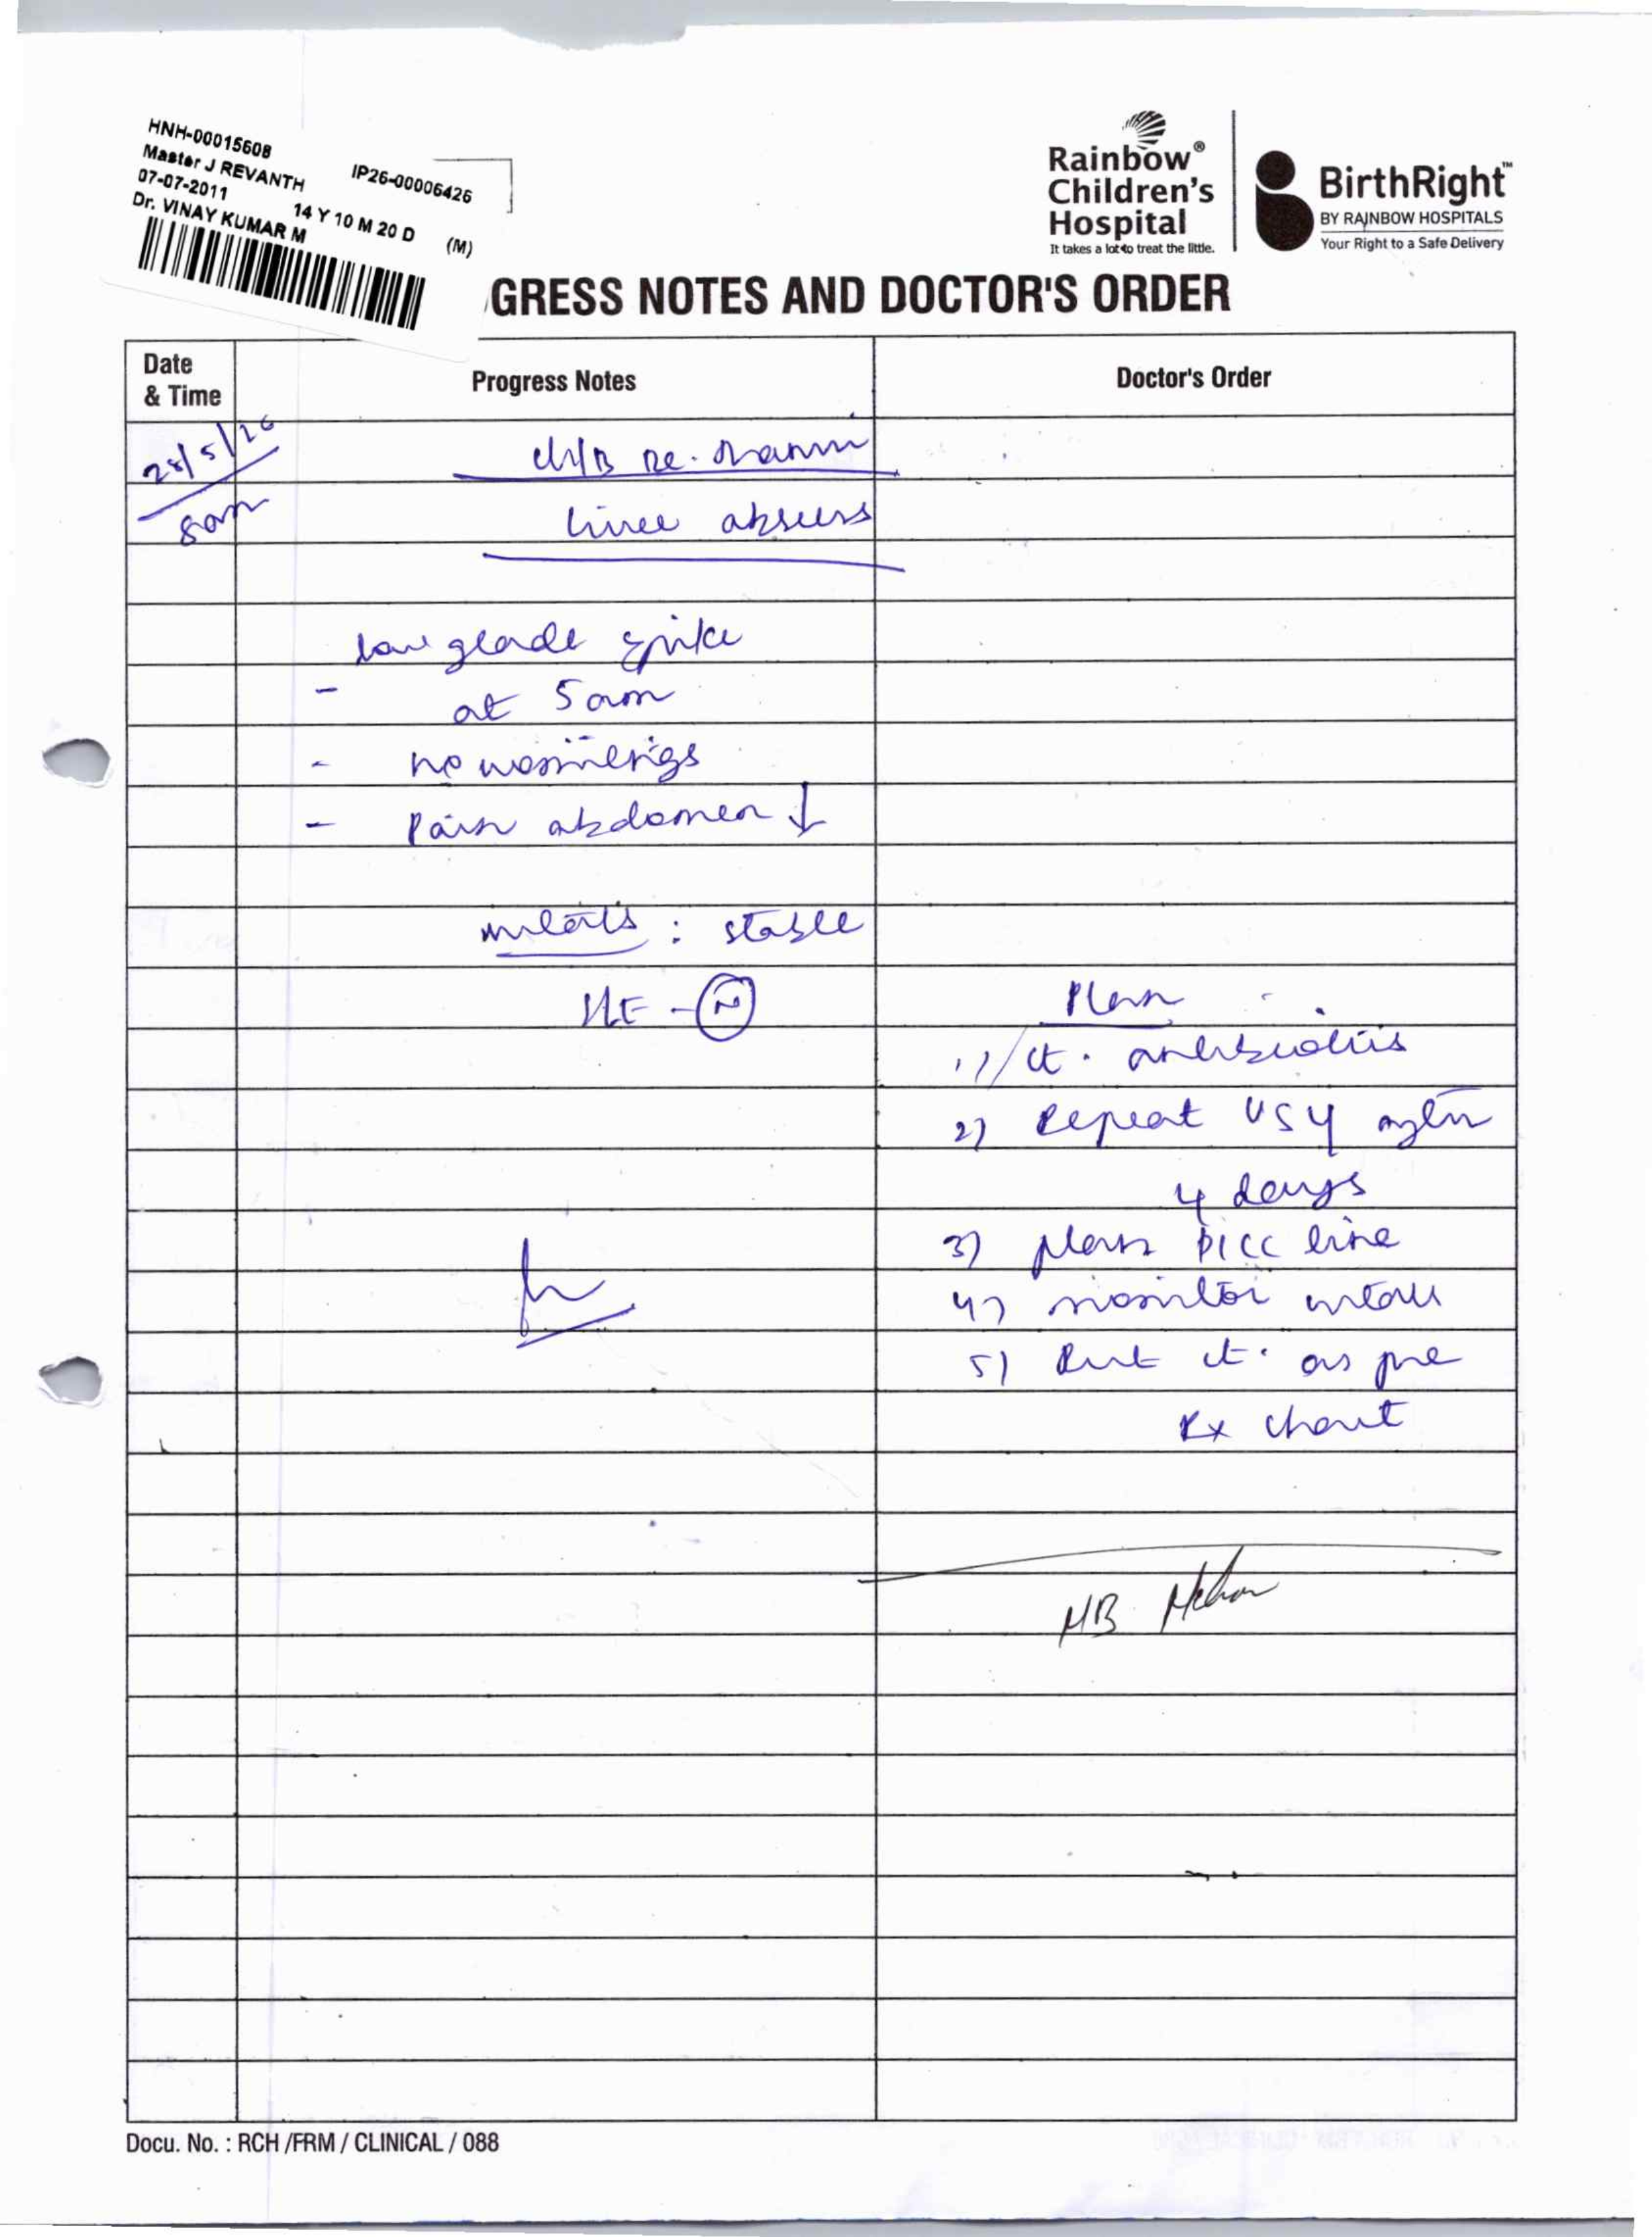 HNH-00015608
Master J REVANTH IP26-00006426
07-07-2011 14 Y 10 M 20 D (M)
Dr. VINAY KUMAR M
Rainbow®
Children's
Hospital
It takes a lot to treat the little.
BirthRight™
BY RAINBOW HOSPITALS
Your Right to a Safe Delivery
GRESS NOTES AND DOCTOR'S ORDER
Date & Time
Progress Notes
Doctor's Order
28/5/26
8am
liver abscess
low grade spike
- at 5am
- no vomitings
- Pain abdomen ↓
vitals : stable
S/E - N
Plan
1) ct. antibiotics
2) Repeat USG after
4 days
3) plan PICC line
4) monitor vitals
5) Rest ct. as per
Rx chart
Docu. No. : RCH /FRM / CLINICAL / 088